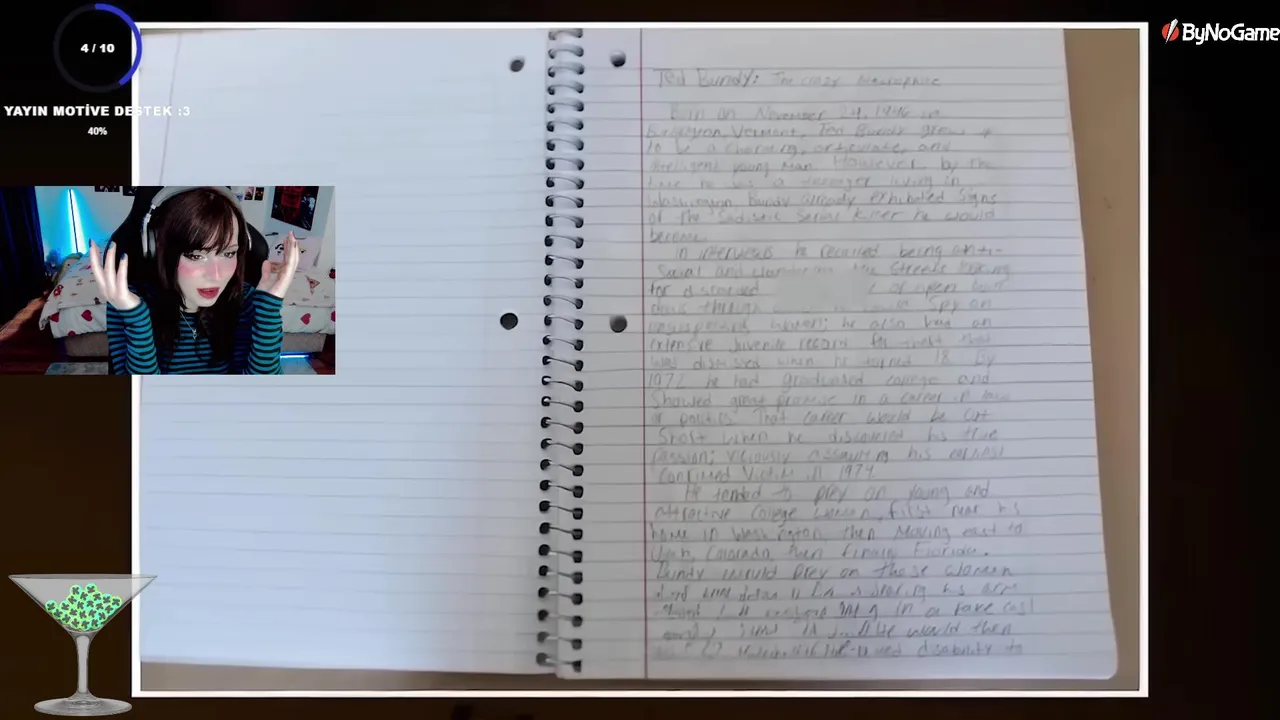 4 / 10
YAYIN MOTİVE DESTEK :3
40%
ByNoGame
Ted Bundy: The crazy
Born on November 24, 1946 in
Vermont, Ted Bundy grew
to be a charming, articulate, and
intelligent young man. However, by the
time he was a teenager living in
Washington Bundy already exhibited signs
of the Sadistic Serial Killer he would
become.
in interviews he recalled being anti-
Social and the Streets looking
for discarded or open
through Spy on
unsuspecting women; he also had an
extensive Juvenile record for theft that
was dismissed when he turned 18. By
1972 he had graduated college and
Showed great promise in a career in law
or politics. That career would be cut
Short when he discovered his true
passion; viciously assaulting his earliest
Confirmed Victim in 1974
He tended to prey on young and
attractive College women, first near his
home in Washington, then Moving east to
Utah, Colorado, then finally Florida.
Bundy would prey on these women
his arm
in a fake cast
He would then
disability to